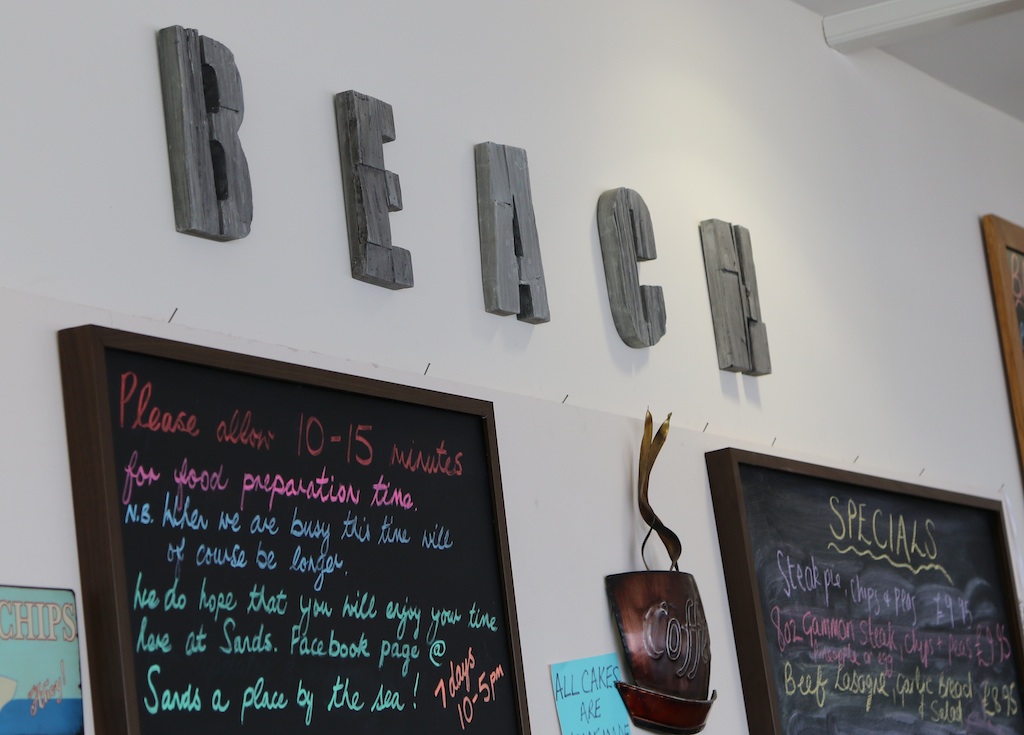 BEACH
Please allow 10-15 minutes
for food preparation time.
N.B. When we are busy this time will
of course be longer.
We do hope that you will enjoy your time
here at Sands. Facebook page @
Sands a place by the sea!
7 days
10-5pm
CHIPS
ALL CAKES
ARE
Coffe
SPECIALS
Steak pie, chips & peas £9.95
8oz Gammon steak chips + peas £9.95
pineapple or egg
Beef Lasagne, garlic bread
& Salad £8.95